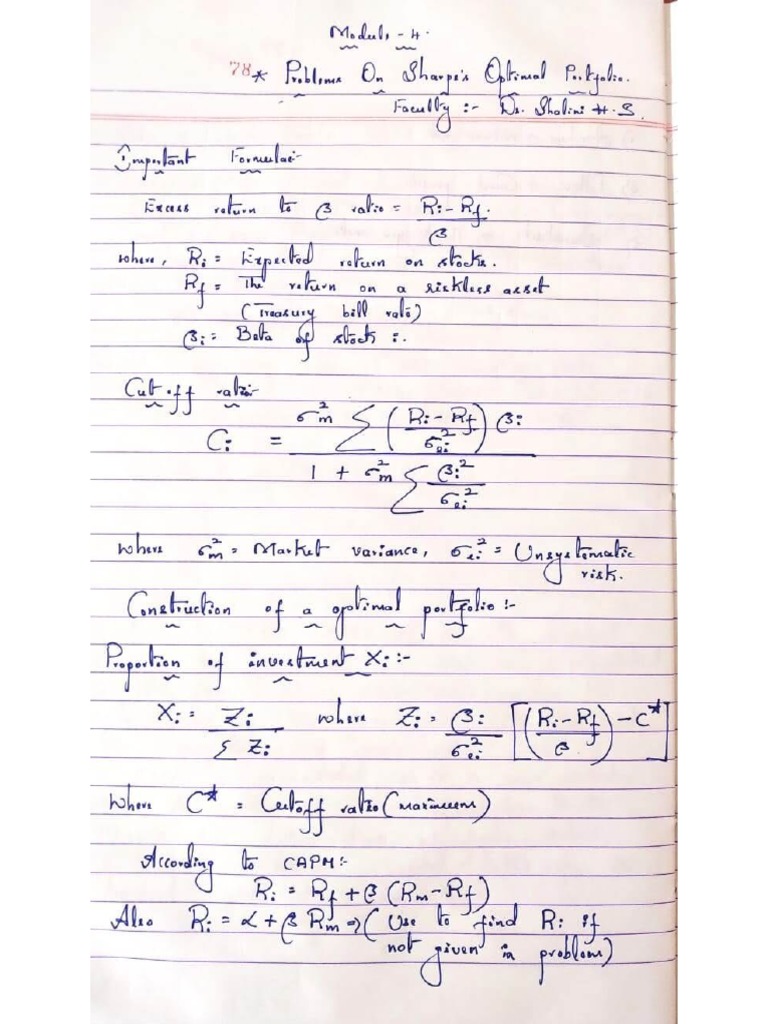 Module - 4.
78 * Problems On Sharpe's Optimal Portfolio.
Faculty :- Dr. Shalini H.S.
Important Formulae:-
Excess return to β ratio = Ri - Rf. / β
where, Ri = Expected return on stocks.
Rf = The return on a riskless asset
(Treasury bill rate)
βi = Beta of stock i.
Cut off ratio:-
Ci = σm² Σ ((Ri - Rf) / σei²) βi / 1 + σm² Σ βi² / σei²
where σm² = Market variance, σei² = Unsystematic
risk.
Construction of a optimal portfolio :-
Proportion of investment Xi :-
Xi = Zi / Σ Zi where Zi = βi / σei² [((Ri - Rf) / β) - C*]
where C* = Cutoff ratio (maximum)
According to CAPM:-
Ri = Rf + β (Rm - Rf)
Also Ri = α + β Rm ⇒ (Use to find Ri if
not given in problem)